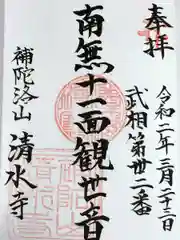 奉拝
令和二年三月二十三日
武相第卅二番
南無十一面観世音
補陀洛山
清水寺